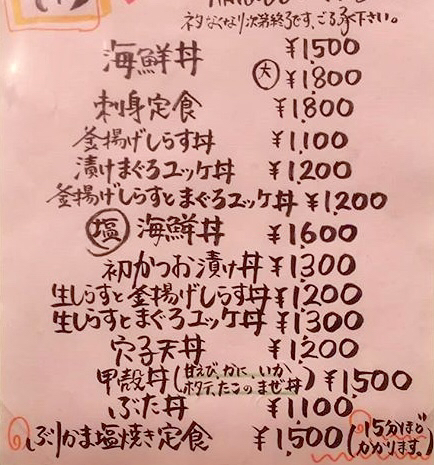 ネタなくなり次第終了です、ご了承下さい。
海鮮丼 ¥1,500
大 ¥1,800
刺身定食 ¥1,800
釜揚げしらす丼 ¥1,100
漬けまぐろユッケ丼 ¥1,200
釜揚げしらすとまぐろユッケ丼 ¥1,200
塩 海鮮丼 ¥1,600
初かつお漬け丼 ¥1,300
生しらすと釜揚げしらす丼 ¥1,200
生しらすとまぐろユッケ丼 ¥1,300
穴子天丼 ¥1,200
甲殻丼(甘えび、かに、いか
ホタテ、たこのまぜ丼) ¥1,500
ぶた丼 ¥1,100
ぶりかま塩焼き定食 ¥1,500(15分ほど
かかります。)